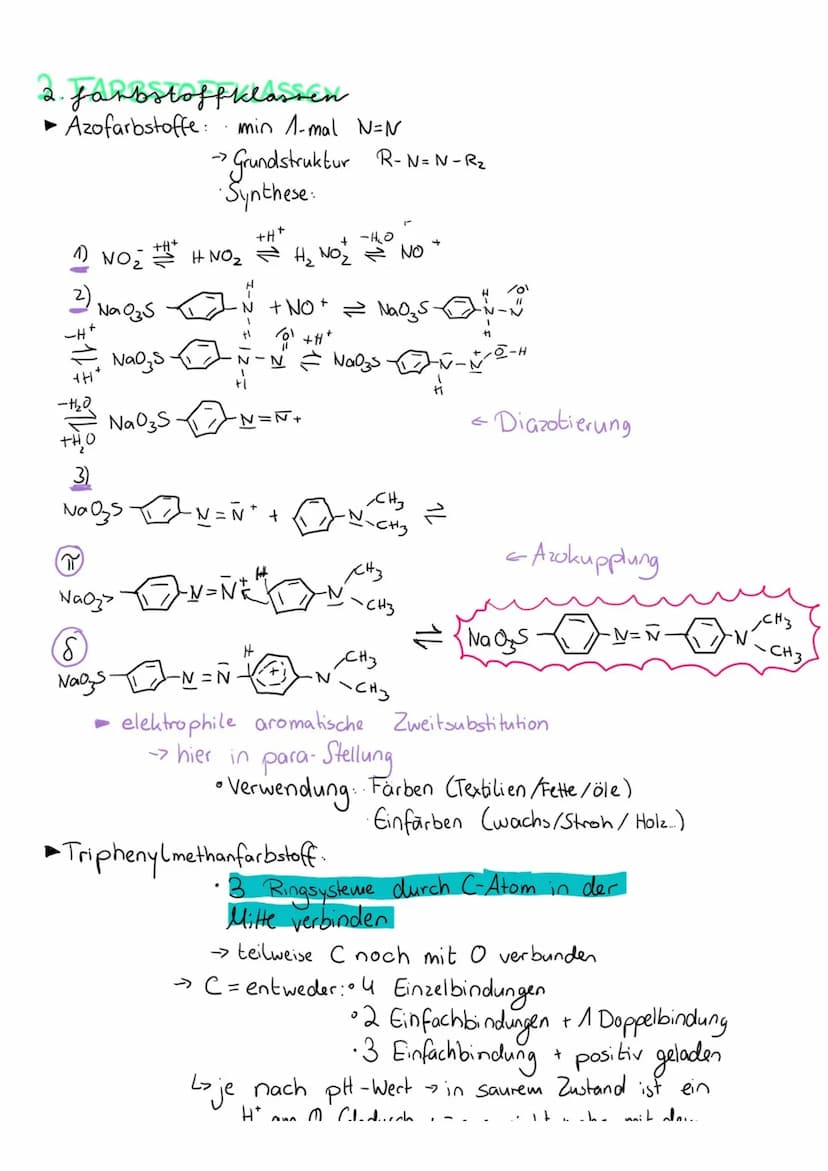 2. FARBSTOFFKLASSEN
2. farbstoffklassen
► Azofarbstoffe: · min 1-mal N=N
→ Grundstruktur R-N=N-R2
· Synthese:
1) NO2⁻ +H⁺ ⇌ HNO2 +H⁺ ⇌ H2NO2⁺ -H2O ⇌ NO⁺
2) NaO3S N H H + NO⁺ ⇌ NaO3S N H H - N O
-H⁺ ⇌ +H⁺ NaO3S N H H - N O +H⁺ ⇌ NaO3S N H - N⁺ O-H
-H2O ⇌ +H2O NaO3S N=N⁺ ← Diazotierung
3)
NaO3S N=N⁺ + N CH3 CH3 ⇌
π ← Azokupplung
NaO3S N=N⁺ H N CH3 CH3
⇌ NaO3S N=N N CH3 CH3
δ
NaO3S N=N H + N CH3 CH3
► elektrophile aromatische Zweitsubstitution
→ hier in para-Stellung
• Verwendung: · Färben (Textilien/Fette/öle)
· Einfärben (Wachs/Stroh/Holz..)
► Triphenylmethanfarbstoff:
· 3 Ringsysteme durch C-Atom in der
Mitte verbinden
→ teilweise C noch mit O verbunden
→ C = entweder: • 4 Einzelbindungen
• 2 Einfachbindungen + 1 Doppelbindung
· 3 Einfachbindung + positiv geladen
↳ je nach pH-Wert → in saurem Zustand ist ein
H⁺ am O